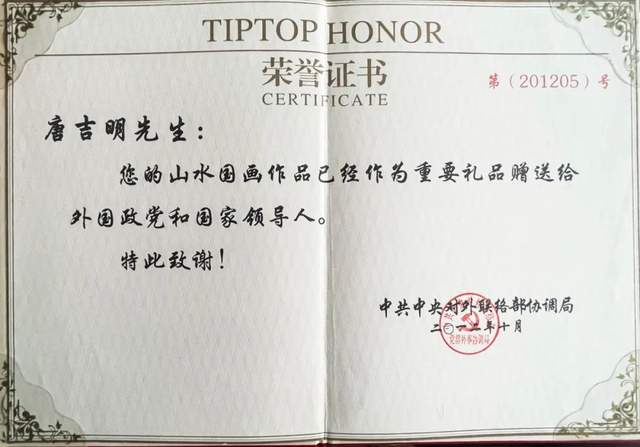 TIPTOP HONOR
荣誉证书
CERTIFICATE
第（201205）号
唐吉明先生：
您的山水国画作品已经作为重要礼品赠送给
外国政党和国家领导人。
特此致谢！
中共中央对外联络部协调局
二〇一二年十月